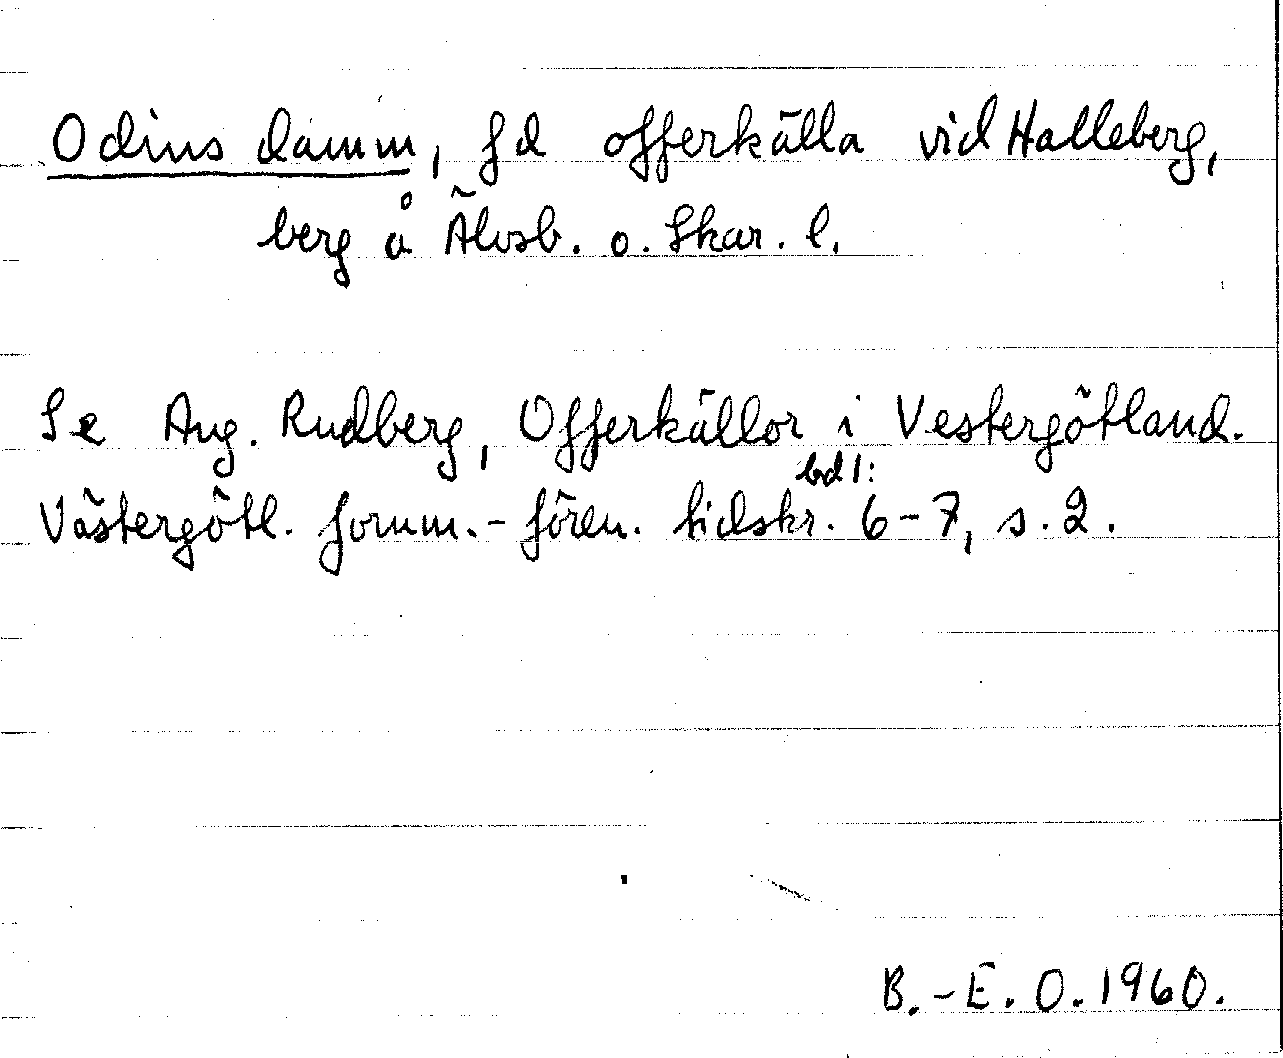 Odins damm, fd offerkälla vid Halleberg,
berg å Älvsb. o. Skar. l.
Se Aug. Rudberg, Offerkällor i Vestergötland.
Västergötl. fornm.-fören. tidskr. bd 1: 6-7, s. 2.
B.-E. O. 1960.